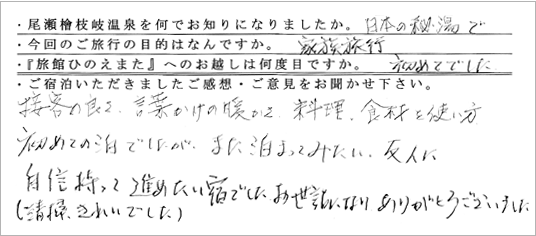 ・尾瀬檜枝岐温泉を何でお知りになりましたか。日本の秘湯で
・今回のご旅行の目的はなんですか。家族旅行
・『旅館ひのえまた』へのお越しは何度目ですか。初めてでした
・ご宿泊いただきましたご感想・ご意見をお聞かせ下さい。
接客の良さ、言葉かけの暖かさ、料理、食材と使い方
初めての泊でしたが、また泊まってみたい、友人に
自信持って進めたい宿でした お世話になり ありがとうございました
(清掃、きれいでした)